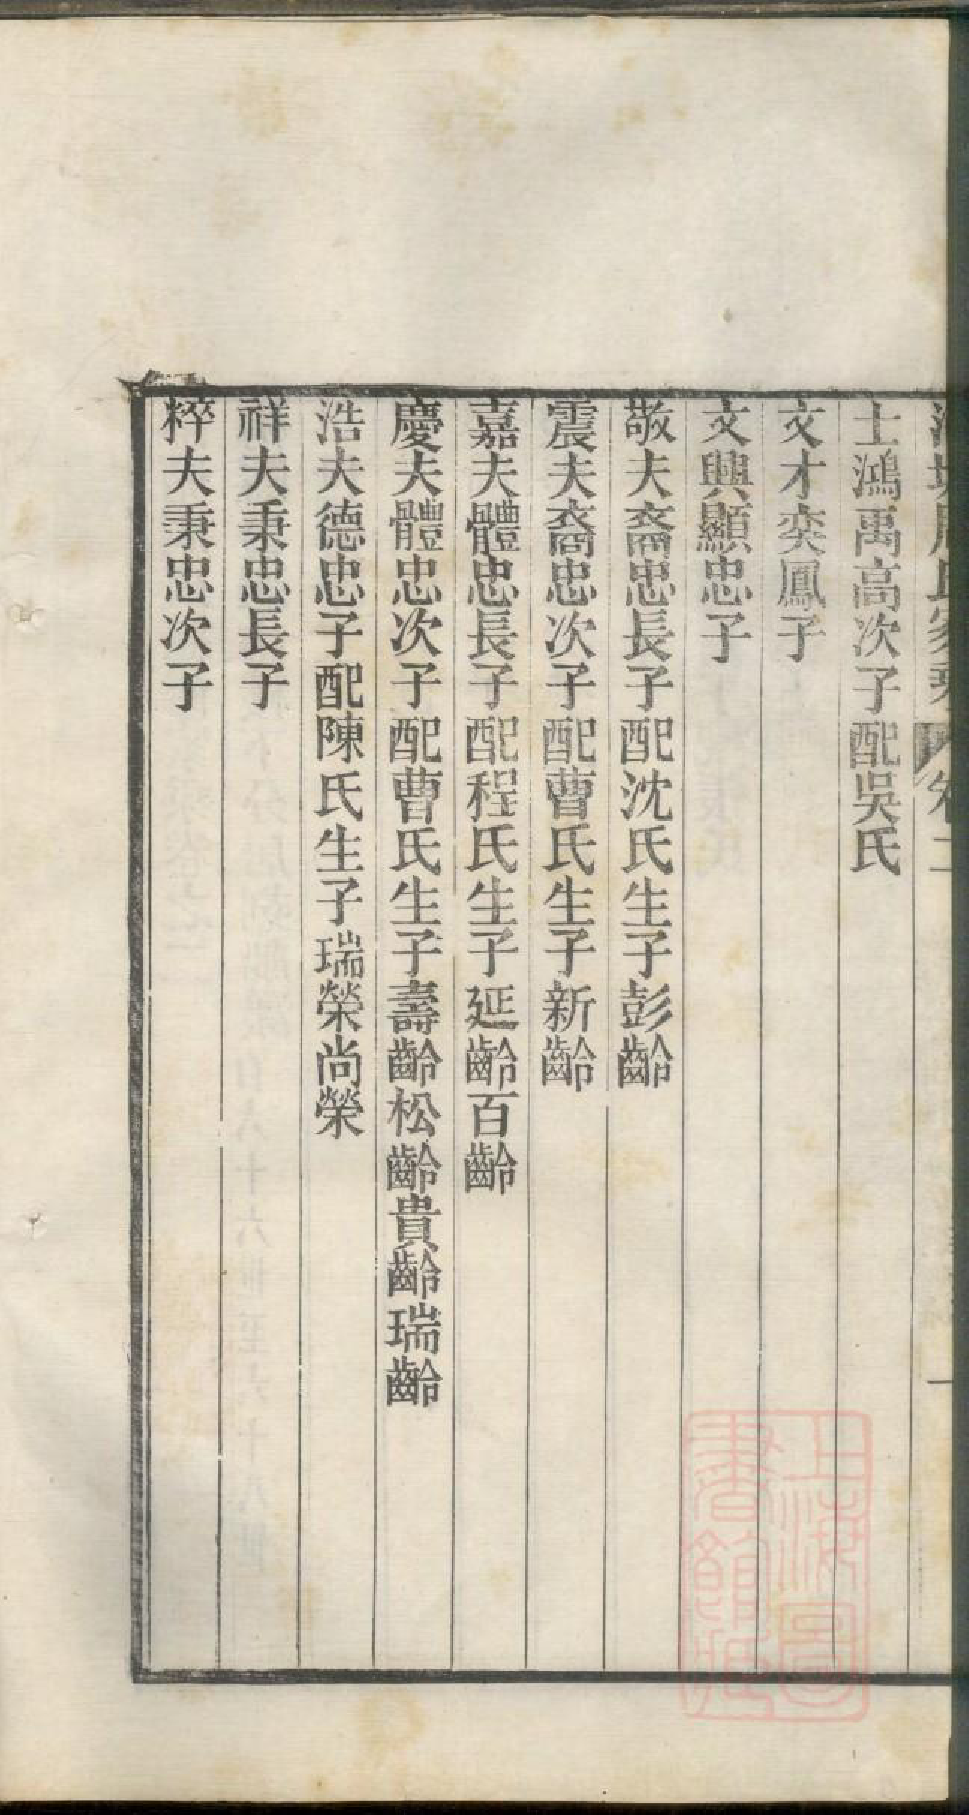 士鴻禹高次子配吳氏
文才奕鳳子
文興顯忠子
敬夫裔忠長子配沈氏生子彭齡
震夫裔忠次子配曹氏生子新齡
嘉夫體忠長子配程氏生子延齡百齡
慶夫體忠次子配曹氏生子壽齡松齡貴齡瑞齡
浩夫德忠子配陳氏生子瑞榮尚榮
祥夫秉忠長子
粹夫秉忠次子
上海圖書館藏